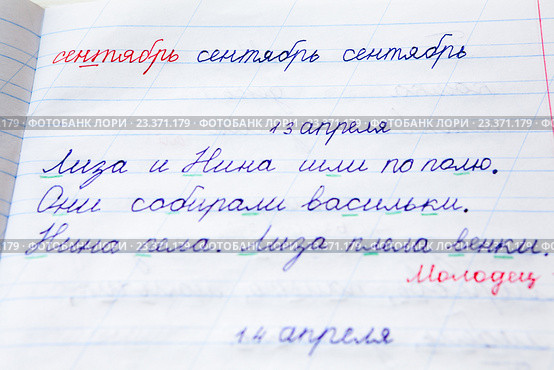 сентябрь сентябрь сентябрь
179 · ФОТОБАНК ЛОРИ · 23.371.179 · ФОТОБАНК ЛОРИ · 23.371.179 · ФОТОБАНК ЛОРИ · 23.371.179
13 апреля
Лиза и Нина шли по полю.
Они собирали васильки.
179 · ФОТОБАНК ЛОРИ · 23.371.179 · ФОТОБАНК ЛОРИ · 23.371.179 · ФОТОБАНК ЛОРИ · 23.371.179
Нина села. Лиза плела венки.
Молодец
14 апреля